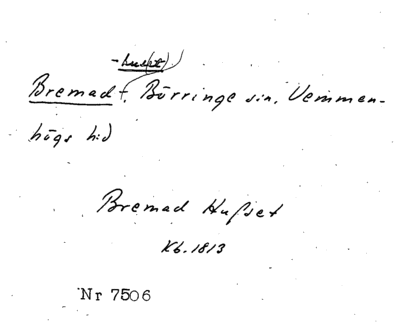 -hus(et)
Bremad f, Börringe sn, Vemmen-
högs hd
Bremad Hußet
Kb. 1813
Nr 7506